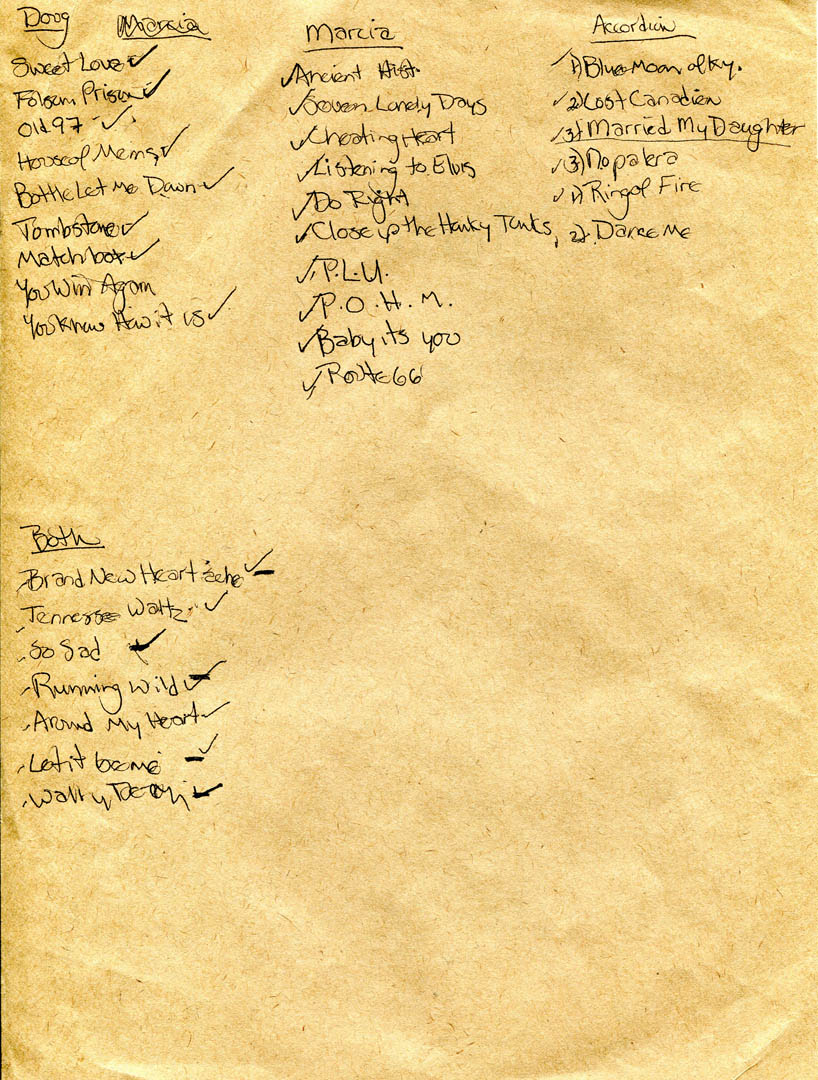 Doug
Sweet Love ✓
Folsom Prison ✓
Old 97 ✓
House of Mems ✓
Bottle Let Me Down ✓
Tombstone ✓
Matchbox ✓
You Win Again
You Know How it is ✓
Marcia
Marcia
✓ Ancient Hist
✓ Seven Lonely Days
✓ Cheating Heart
✓ Listening to Elvis
✓ Do Right
✓ Close up the Honky Tonks
✓ P.L.U.
✓ P.O.H.M.
✓ Baby its you
✓ Route 66
Accordion
✓ 1) Blue Moon of Ky.
✓ 2) Lost Canadien
✓ 3) Married My Daughter
✓ 3) Nopalera
✓ 1) Ring of Fire
2) Dance Me
Both
Brand New Heartache ✓
Tennessee Waltz ✓
So Sad ✓
Running Wild ✓
Around My Heart ✓
Let it be me ✓